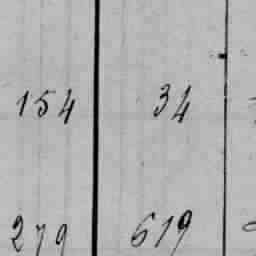 154 34
279 619